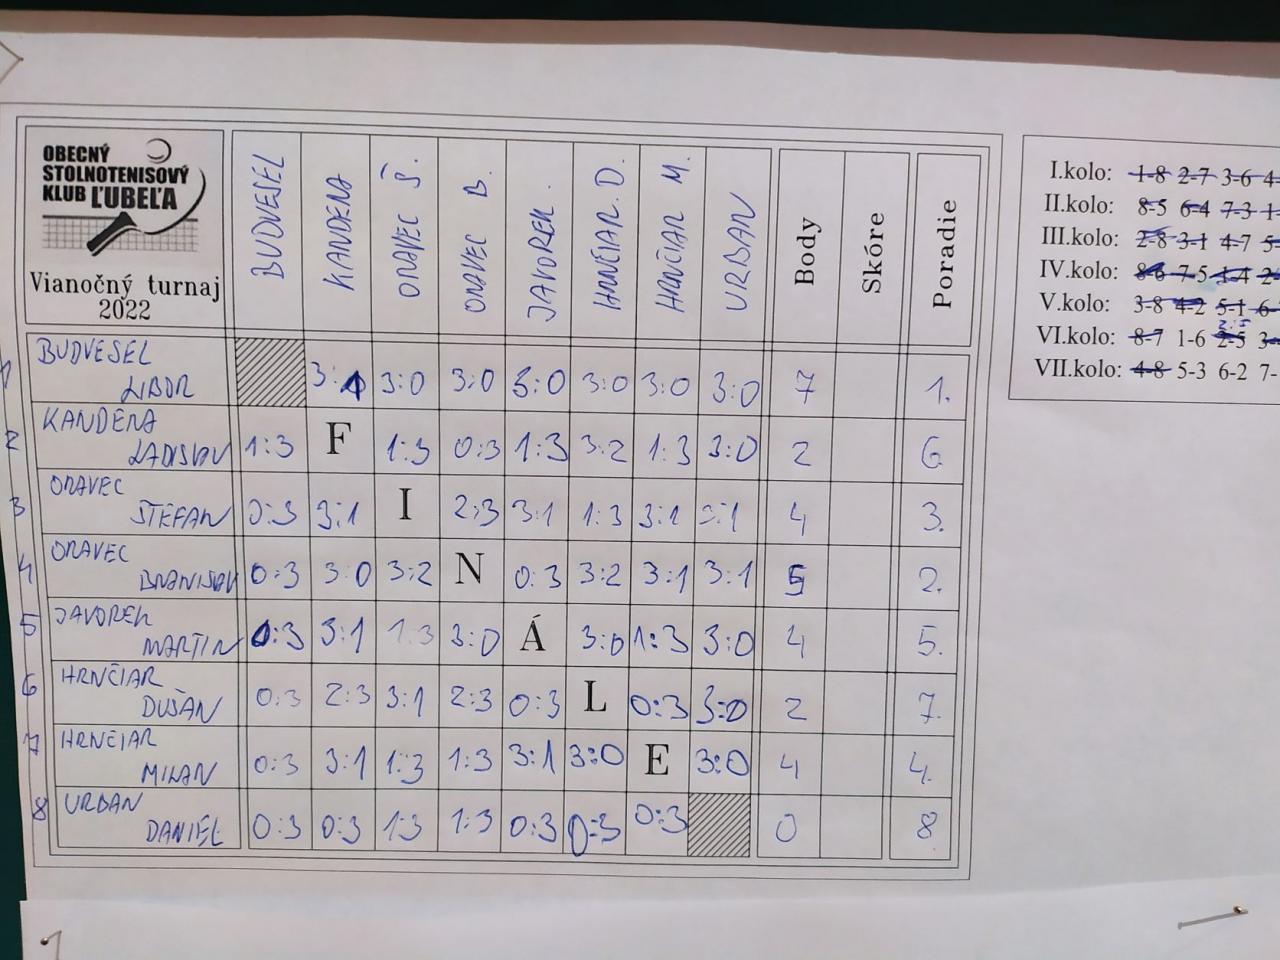 OBECNÝ
STOLNOTENISOVÝ
KLUB ĽUBEĽA
Vianočný turnaj
2022
BUDVESEL KANDERA ORAVEC Š. ORAVEC B. JAVOREK. HRNČIAR. D. HRNČIAR M. URBAN Body Skóre Poradie
1 BUDVESEL
LIBOR 3:1 3:0 3:0 3:0 3:0 3:0 3:0 7 1.
2 KANDERA
LADISLAV 1:3 F 1:3 0:3 1:3 3:2 1:3 3:0 2 6.
3 ORAVEC
ŠTEFAN 0:3 3:1 I 2:3 3:1 1:3 3:1 3:1 4 3.
4 ORAVEC
BRANISLAV 0:3 3:0 3:2 N 0:3 3:2 3:1 3:1 5 2.
5 JAVOREK
MARTIN 0:3 3:1 1:3 3:0 Á 3:0 1:3 3:0 4 5.
6 HRNČIAR
DUŠAN 0:3 2:3 3:1 2:3 0:3 L 0:3 3:0 2 7.
7 HRNČIAR
MILAN 0:3 3:1 1:3 1:3 3:1 3:0 E 3:0 4 4.
8 URBAN
DANIEL 0:3 0:3 1:3 1:3 0:3 0:3 0:3 0 8
I.kolo: 1-8 2-7 3-6 4-
II.kolo: 8-5 6-4 7-3 1-
III.kolo: 2-8 3-1 4-7 5-
IV.kolo: 8-6 7-5 1-4 2-
V.kolo: 3-8 4-2 5-1 6-
VI.kolo: 8-7 1-6 2-5 3-
VII.kolo: 4-8 5-3 6-2 7-